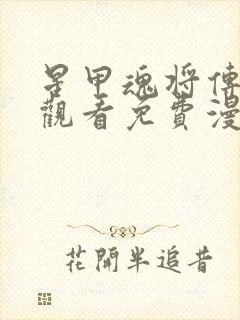 星甲魂將傳
觀看免費漫
花開半追昔